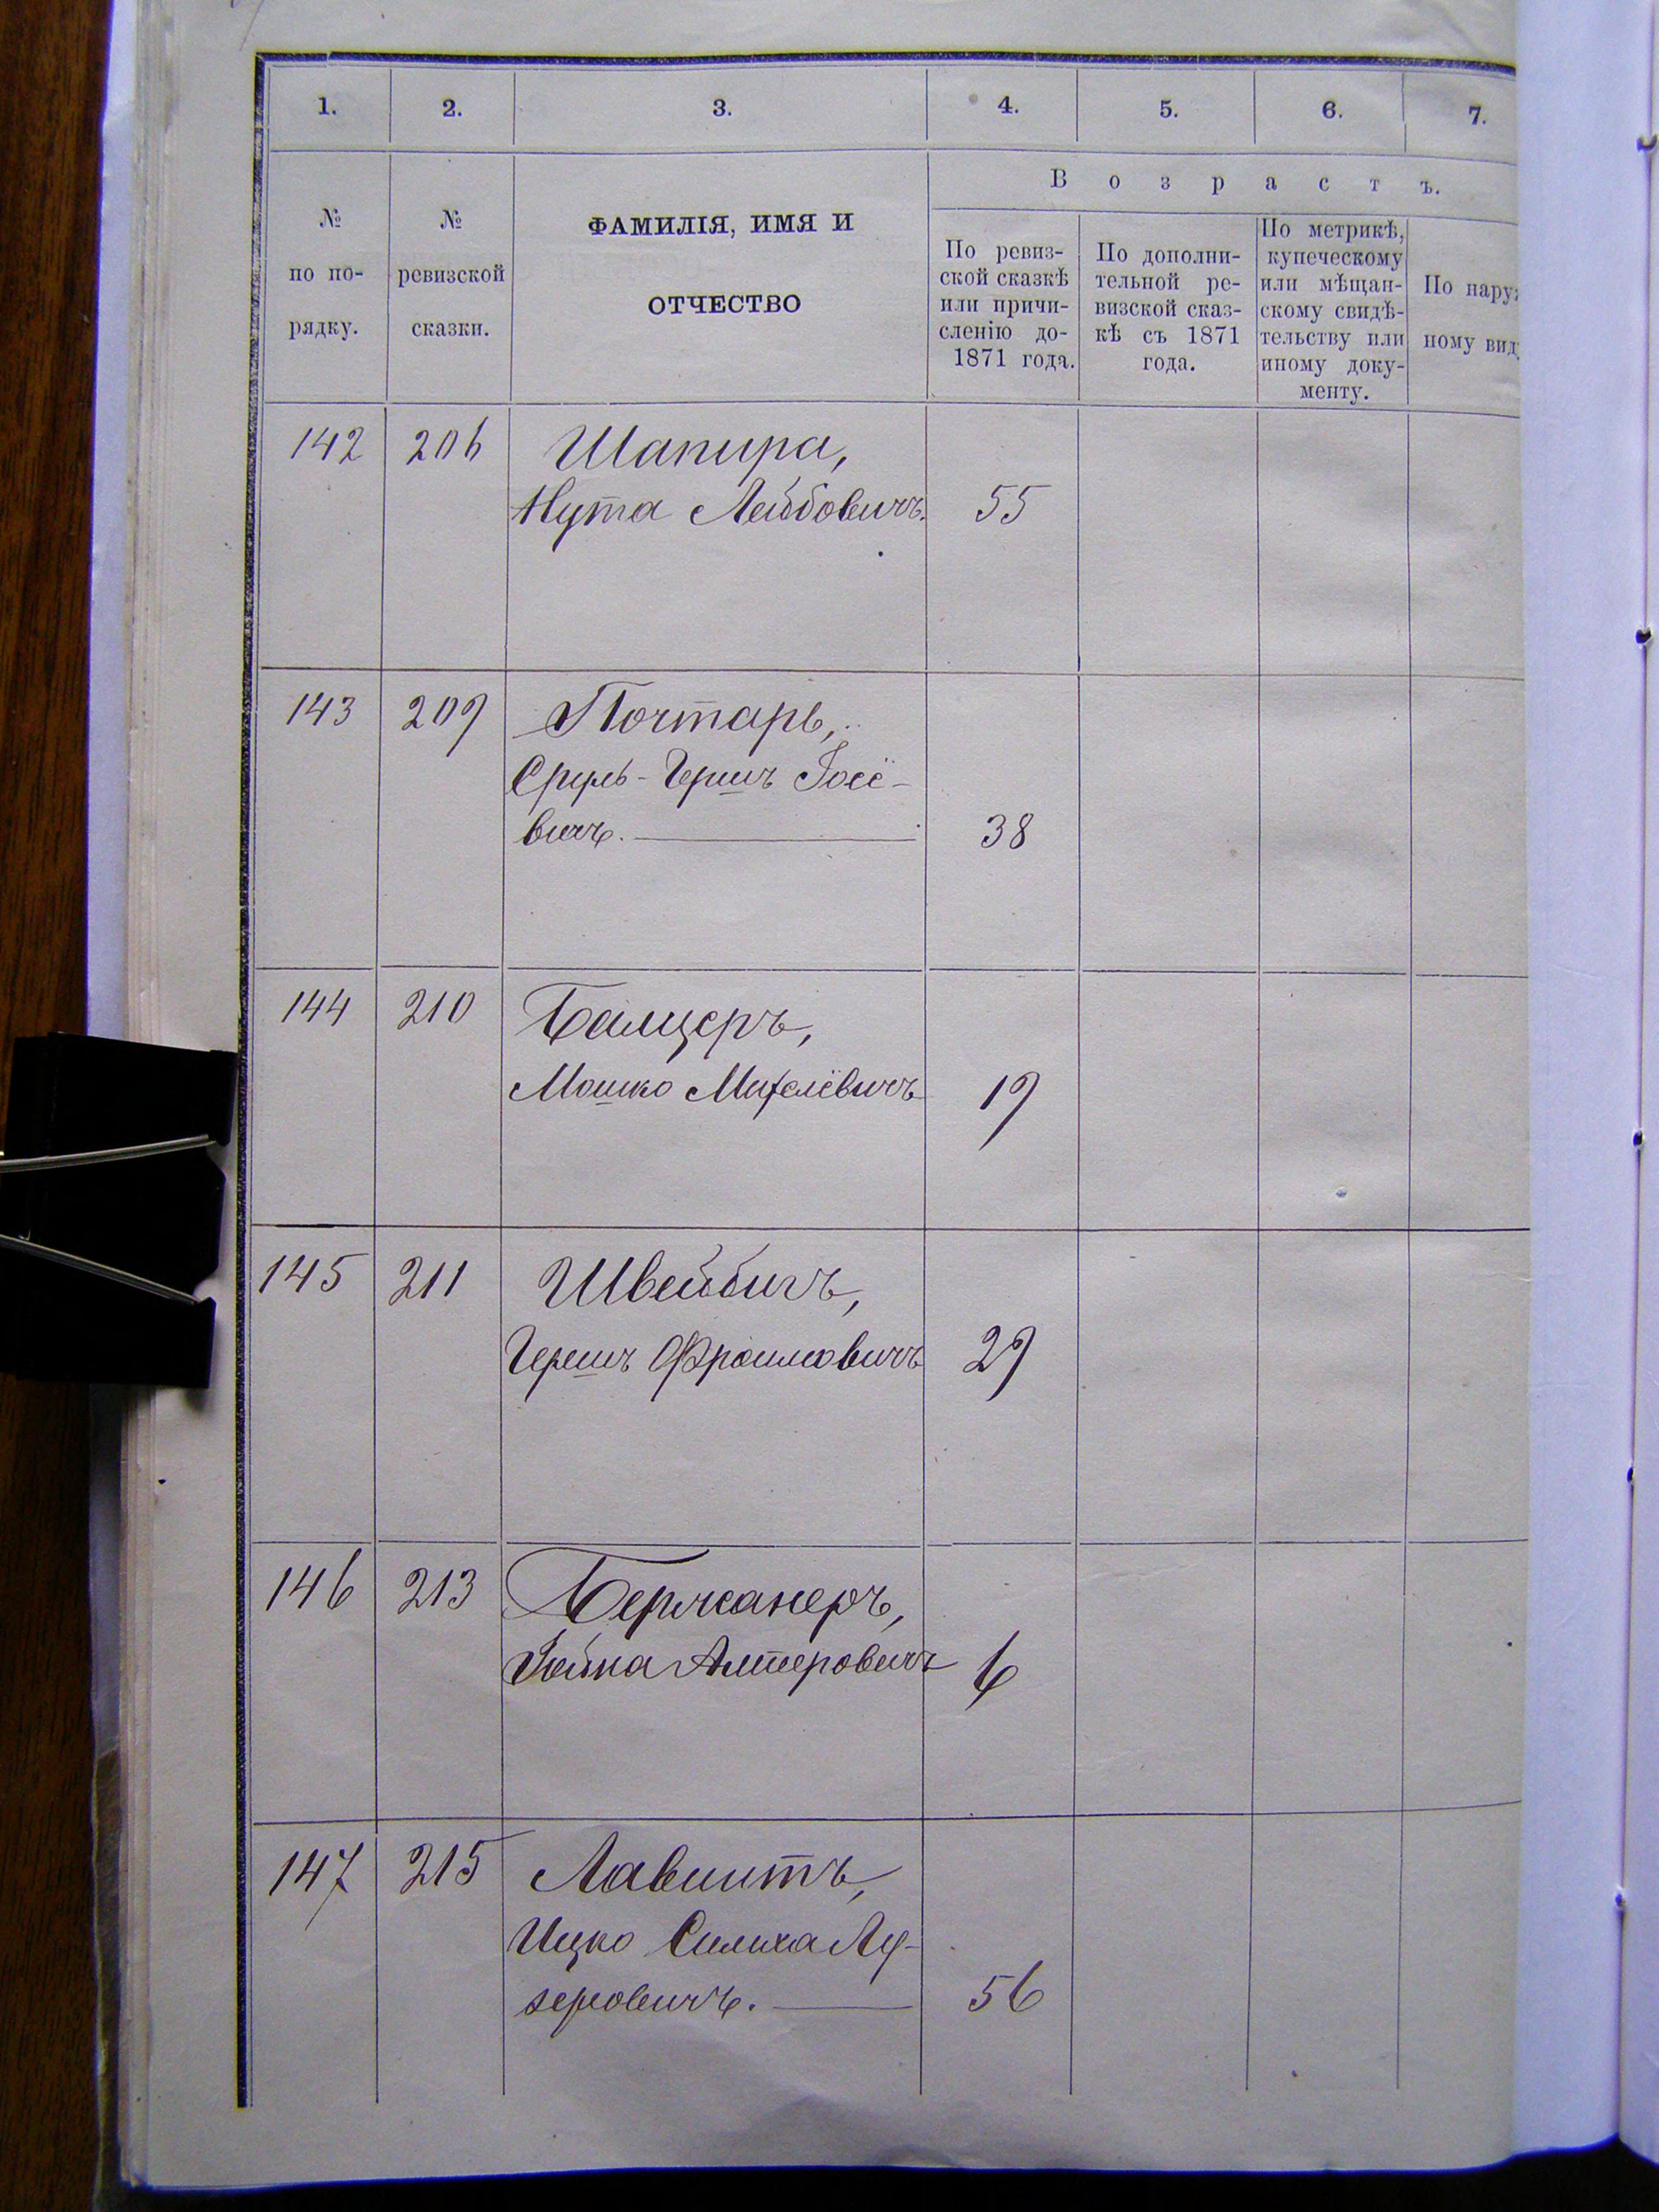 1. 2. 3. 4. 5. 6. 7.
В о з р а с т ъ.
№
по по-
рядку.
№
ревизской
сказки.
ФАМИЛІЯ, ИМЯ И
ОТЧЕСТВО
По ревиз-
ской сказкѣ
или причи-
сленію до-
1871 года.
По дополни-
тельной ре-
визской сказ-
кѣ съ 1871
года.
По метрикѣ,
купеческому
или мѣщан-
скому свидѣ-
тельству или
иному доку-
менту.
По нару
ному вид
142 206 Шапира,
Нута Лейбовичъ. 55
143 209 Почтарь,
Сруль-Гершъ Іосе-
вичъ. 38
144 210 Балцеръ,
Мошко 19
145 211
Гершъ Фроимовичъ 29
146 213
Алтеровичъ 6
147 215
Ицко Лу-
зеровичъ. 56